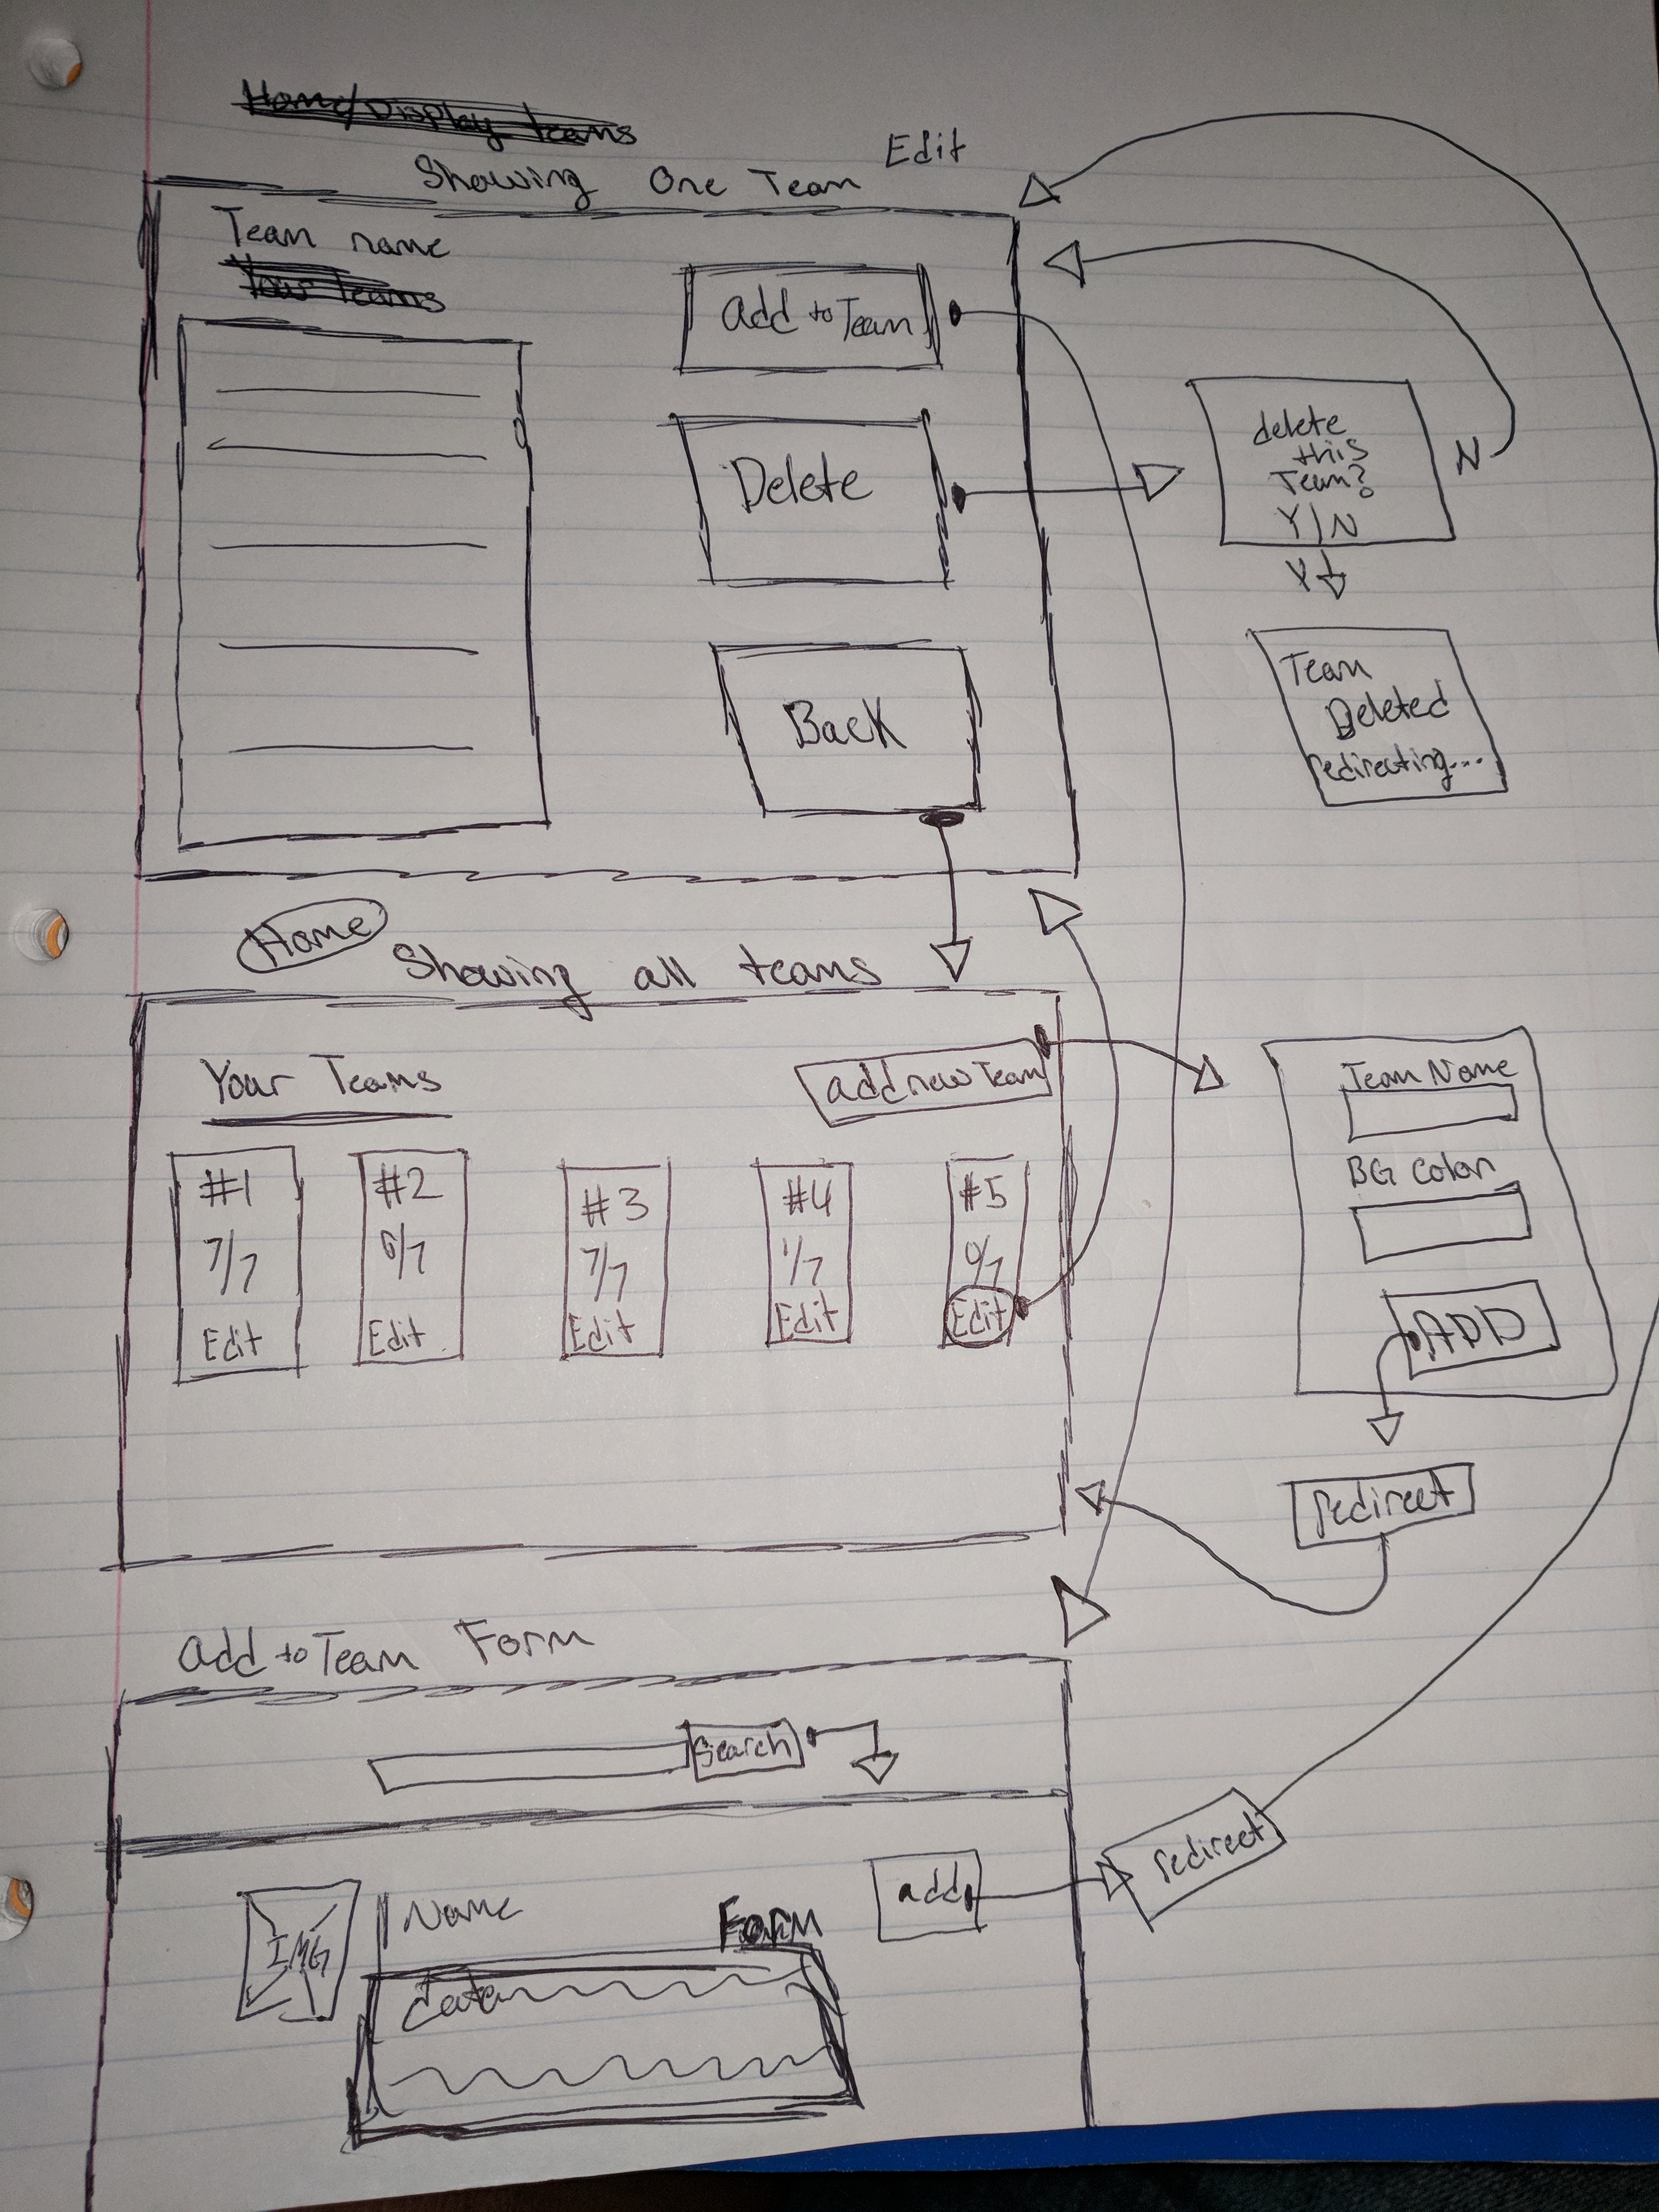 Home/Display teams
Showing One Team
Edit
Team name
Your Teams
add to Team
Delete
Back
delete
this
Team?
Y|N
N
Y
Team
Deleted
redirecting...
Home
Showing all teams
Your Teams
add new Team
#1
7/7
Edit
#2
6/7
Edit
#3
7/7
Edit
#4
1/7
Edit
#5
0/7
Edit
Team Name
BG Color
ADD
redirect
add to Team Form
Search
IMG
Name
Form
data
add
redirect